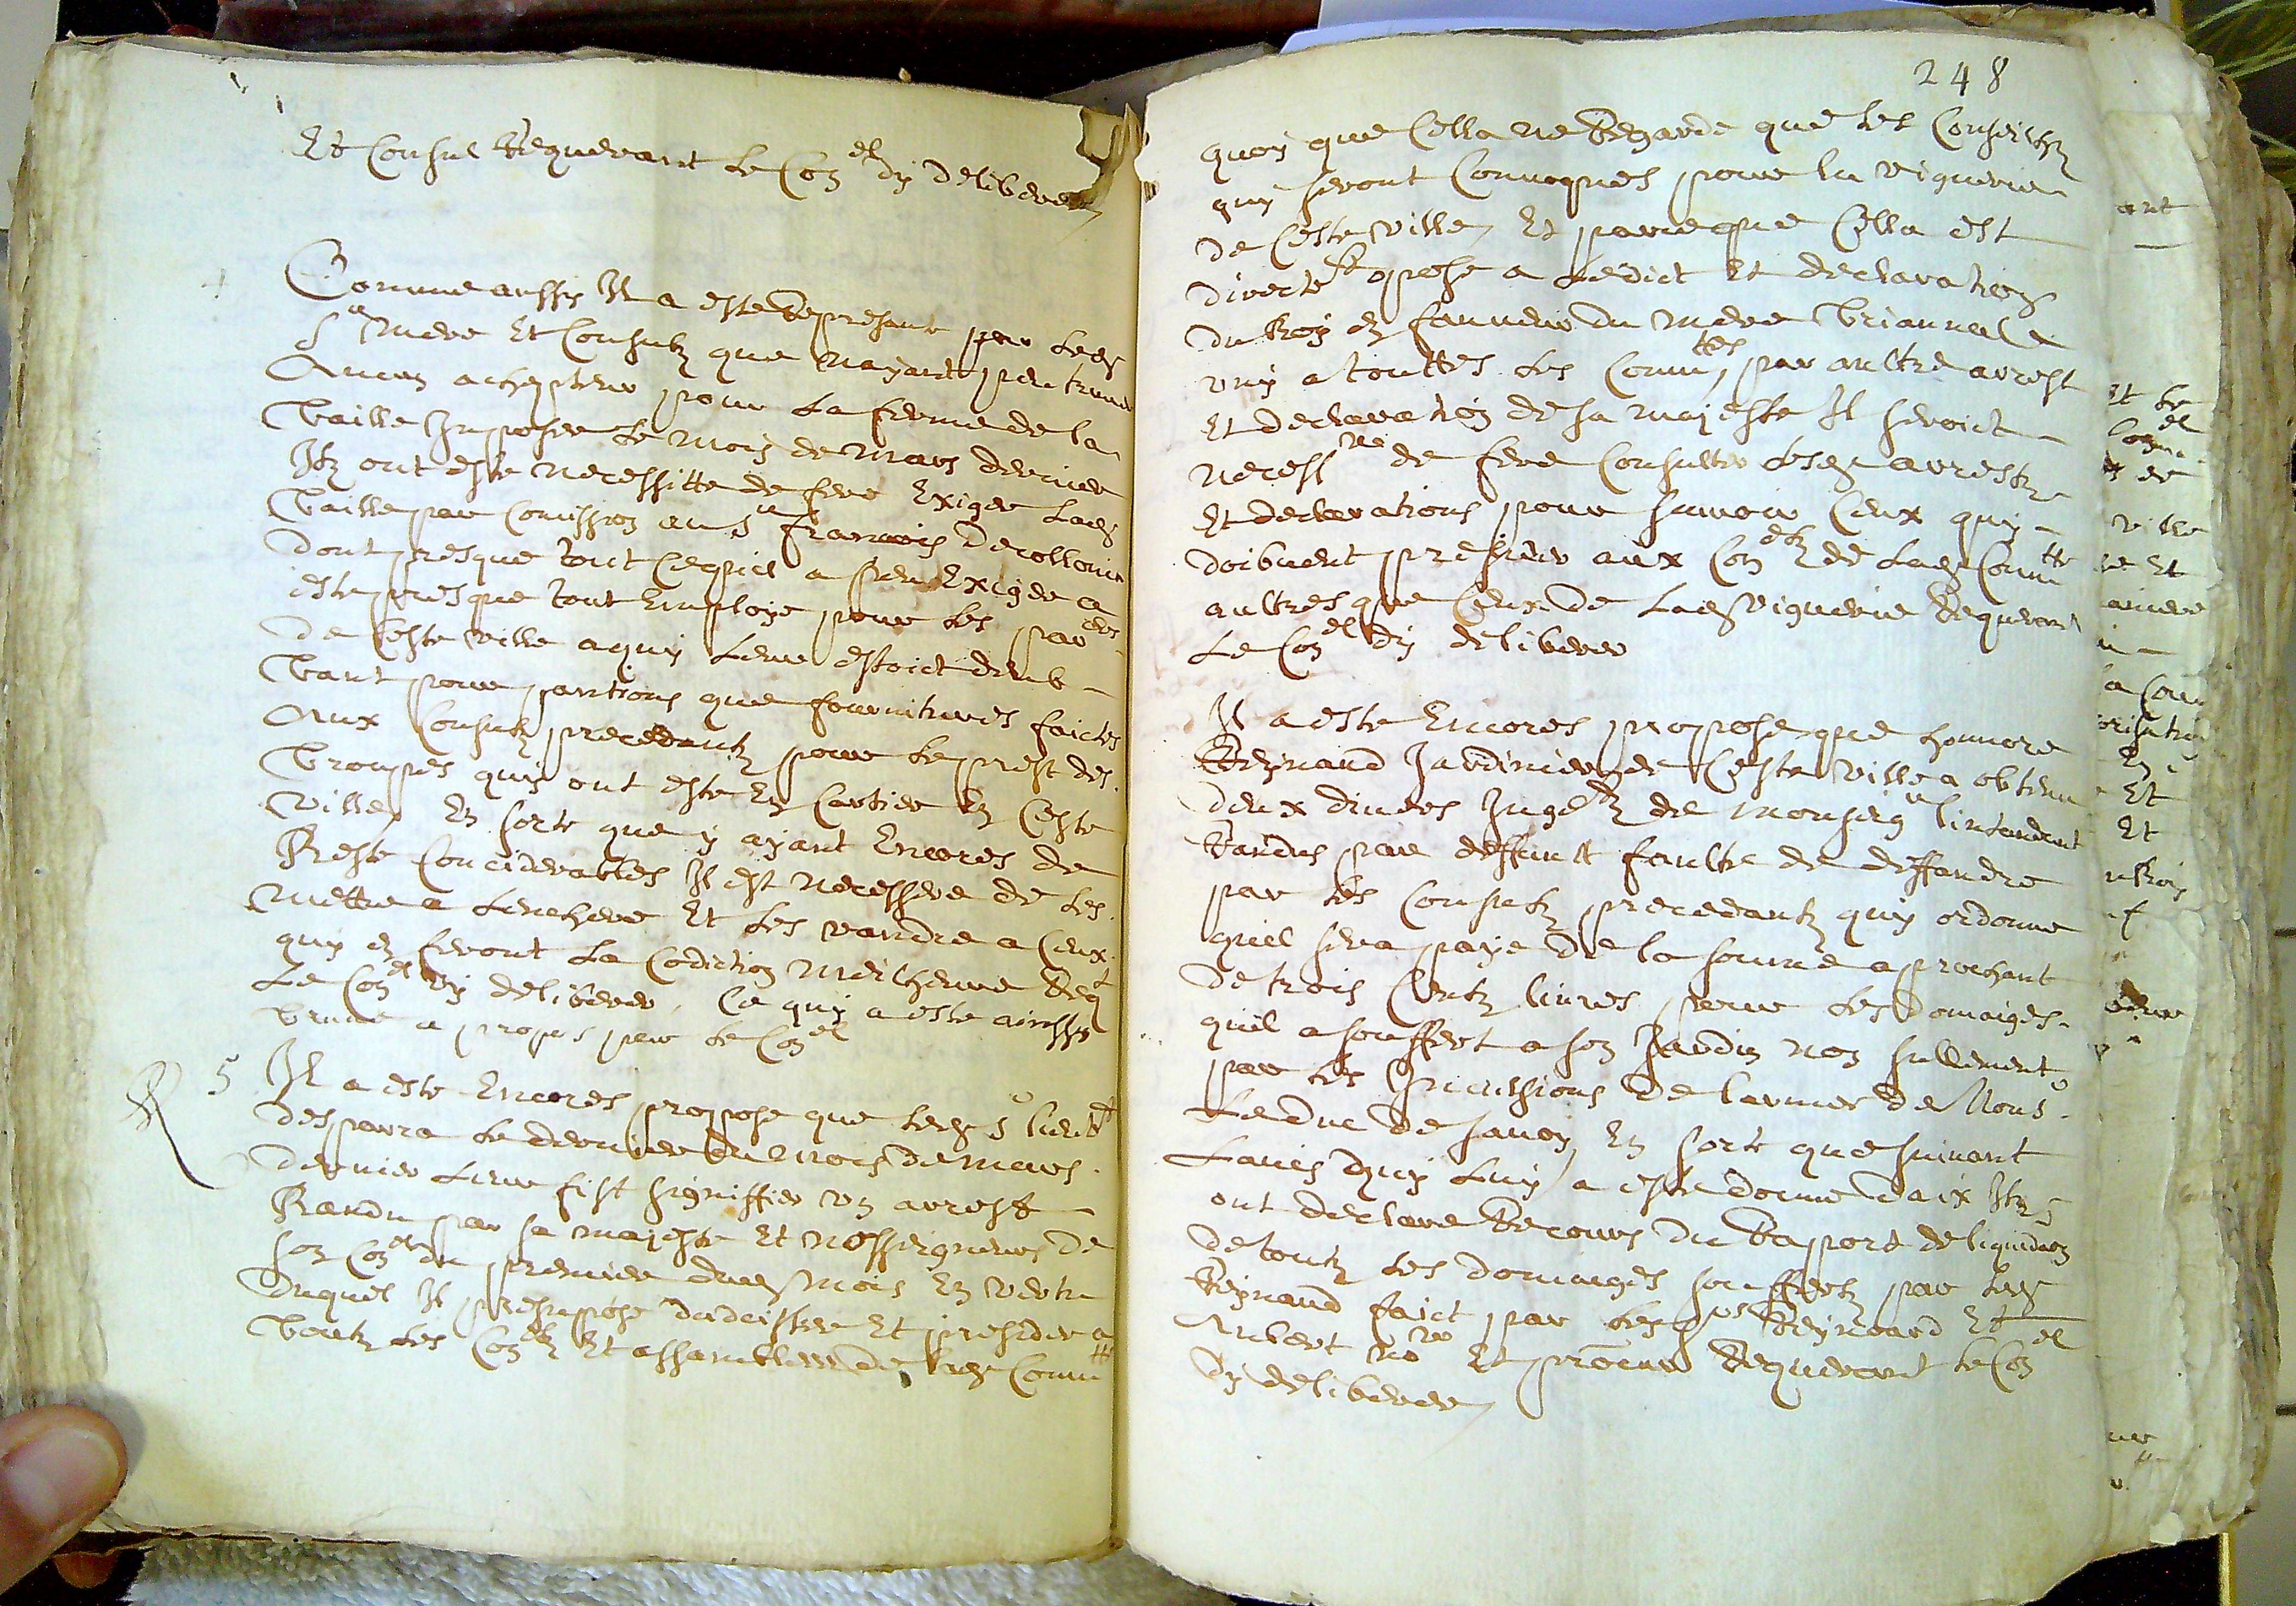 Et Consul Requerant le Con el dy deliberer
4
Comme aussy Il a este Represante par lesd
s rs Mere Et Consulz que nayant peu trouver
Aucun achepteur pour La ferme de la
taille Imposee le mois de Mars dernier
Ilz ont este necessitte de fere Exiger lad
taille par Comission au s r francois
dont presque tout ce quil a peu Exiger a
este presque tout Employe pour les par ers
de Ceste ville aquy Leur estoict deub
tant pour pantions que fournitures faictes
Aux Consulz precedantz pour le prest des
troupes quy ont este En Cartier En Ceste
ville En sorte que y ayant Encores de
Reste Conciderables Il est necessere de les
mettre a Lenchere Et les vandre a Ceux
quy En feront La Condiction meilheure Req t
Le Con el dy deliberer, Ce quy a este ainssy
treuve a propos par le Con el
5 Il a este Encores propose que led s r lieut t
desparra le dernier du mois de Mars
dernier Leur fist signiffier un arrest
Randu par sa majeste Et nosseigneurs de
son Con el du premier dud mois En vertu
duquel Il presupose dadcister Et presider a
toutz les Con elz Et assamblees de lad Comm tte
248
quoy que Cella ne Regarde que les Conseilhz
quy seront Convoques pour la viguerie
de Ceste ville Et parceque Cella est
directe nt opose a Ledict Et declaration
du Roy En faveur du Mere triannal
uny a touttes les Comm ttes, par aultre arrest
Et declaration de sa majeste Il seroict
necess re de fere Consulter lesd arrestz
Et declarations pour savoir Ceux quy
doibvent presider aux Con elz de lad Comm tte
aultres que Ceux de Lad viguerie Requerant
Le Con el dy deliberer
Il a este Encores propose que honnore
Reynaud Jardinier de Ceste ville a obtenu
deux divers Juge tz de Monseig r lintandant
Randus par deffault faulte de deffandre
par les Consulz precedantz quy ordonne
quil sera paye de la somme aprochant
de trois Centz livres pour les domaiges
quil a souffert a son Jardin non sullement
par les Incurssions de larmee de Mons r
Le duc de savoy En sorte que suivant
Lavis quy Luy a este donne daix Ilz
ont declare Recours du Raport de liquida on
de toutz les domaiges souffertz par led
Reynaud faict par les Reynoard Et
Aubert no re Et procureur Requerant le Con el
dy deliberer